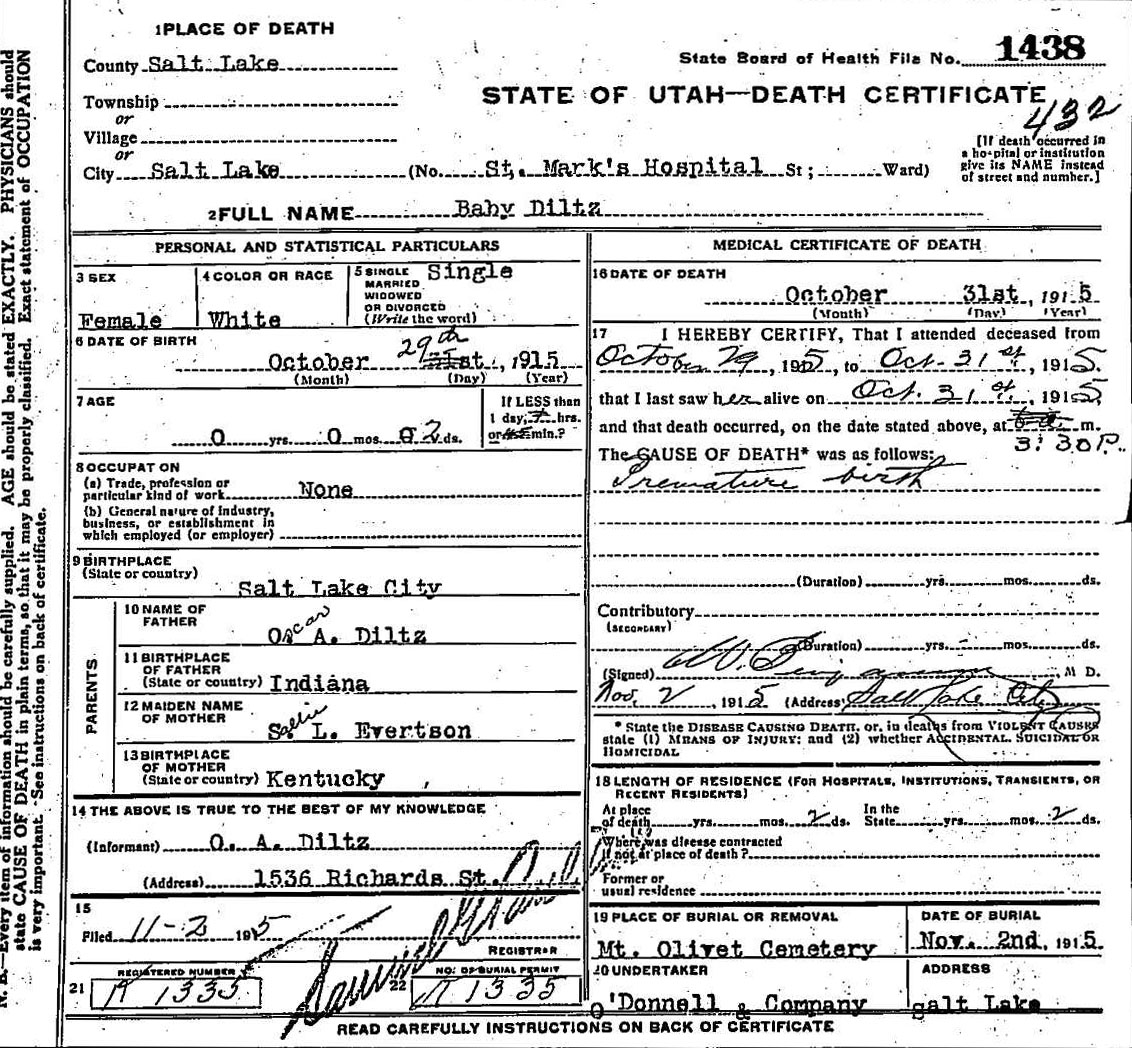 1 PLACE OF DEATH
County Salt Lake
State Board of Health File No. 1438
STATE OF UTAH—DEATH CERTIFICATE
432
Township
or
Village
or
City Salt Lake (No. St. Mark's Hospital St; Ward)
[If death occurred in
a hospital or institution
give its NAME instead
of street and number.]
2 FULL NAME Baby Diltz
PERSONAL AND STATISTICAL PARTICULARS
3 SEX
Female
4 COLOR OR RACE
White
5 SINGLE
MARRIED
WIDOWED
OR DIVORCED
(Write the word)
Single
6 DATE OF BIRTH
October 29th 31st, 1915
(Month) (Day) (Year)
7 AGE
0 yrs. 0 mos. 2 ds.
If LESS than
1 day, hrs.
or min.?
8 OCCUPATION
(a) Trade, profession or
particular kind of work None
(b) General nature of industry,
business, or establishment in
which employed (or employer)
9 BIRTHPLACE
(State or country)
Salt Lake City
PARENTS
10 NAME OF
FATHER
Oscar A. Diltz
11 BIRTHPLACE
OF FATHER
(State or country) Indiana
12 MAIDEN NAME
OF MOTHER
Sallie
S. L. Evertson
13 BIRTHPLACE
OF MOTHER
(State or country) Kentucky
14 THE ABOVE IS TRUE TO THE BEST OF MY KNOWLEDGE
(Informant) O. A. Diltz
(Address) 1536 Richards St.
15
Filed 11-2 1915
REGISTRAR
21 REGISTERED NUMBER
1335
22 NO. OF BURIAL PERMIT
1335
MEDICAL CERTIFICATE OF DEATH
16 DATE OF DEATH
October 31st, 1915
(Month) (Day) (Year)
17 I HEREBY CERTIFY, That I attended deceased from
October 29, 1915, to Oct. 31st, 1915.
that I last saw her alive on Oct. 31st, 1915,
and that death occurred, on the date stated above, at m.
3:30 P.
The CAUSE OF DEATH* was as follows:
Premature birth
(Duration) yrs. mos. ds.
Contributory
(SECONDARY)
(Duration) yrs. mos. ds.
(Signed) M D.
Nov. 2, 1915 (Address) Salt Lake City
* State the DISEASE CAUSING DEATH, or, in deaths from VIOLENT CAUSES
state (1) MEANS OF INJURY; and (2) whether ACCIDENTAL, SUICIDAL OR
HOMICIDAL
18 LENGTH OF RESIDENCE (FOR HOSPITALS, INSTITUTIONS, TRANSIENTS, OR
RECENT RESIDENTS)
At place
of death yrs. mos. 2 ds.
In the
State yrs. mos. 2 ds.
Where was disease contracted
if not at place of death?
Former or
usual residence
19 PLACE OF BURIAL OR REMOVAL
Mt. Olivet Cemetery
DATE OF BURIAL
Nov. 2nd, 1915.
20 UNDERTAKER
O'Donnell & Company
ADDRESS
Salt Lake
READ CAREFULLY INSTRUCTIONS ON BACK OF CERTIFICATE
N. B.—Every item of information should be carefully supplied. AGE should be stated EXACTLY. PHYSICIANS should
state CAUSE OF DEATH in plain terms, so that it may be properly classified. Exact statement of OCCUPATION
is very important. See instructions on back of certificate.